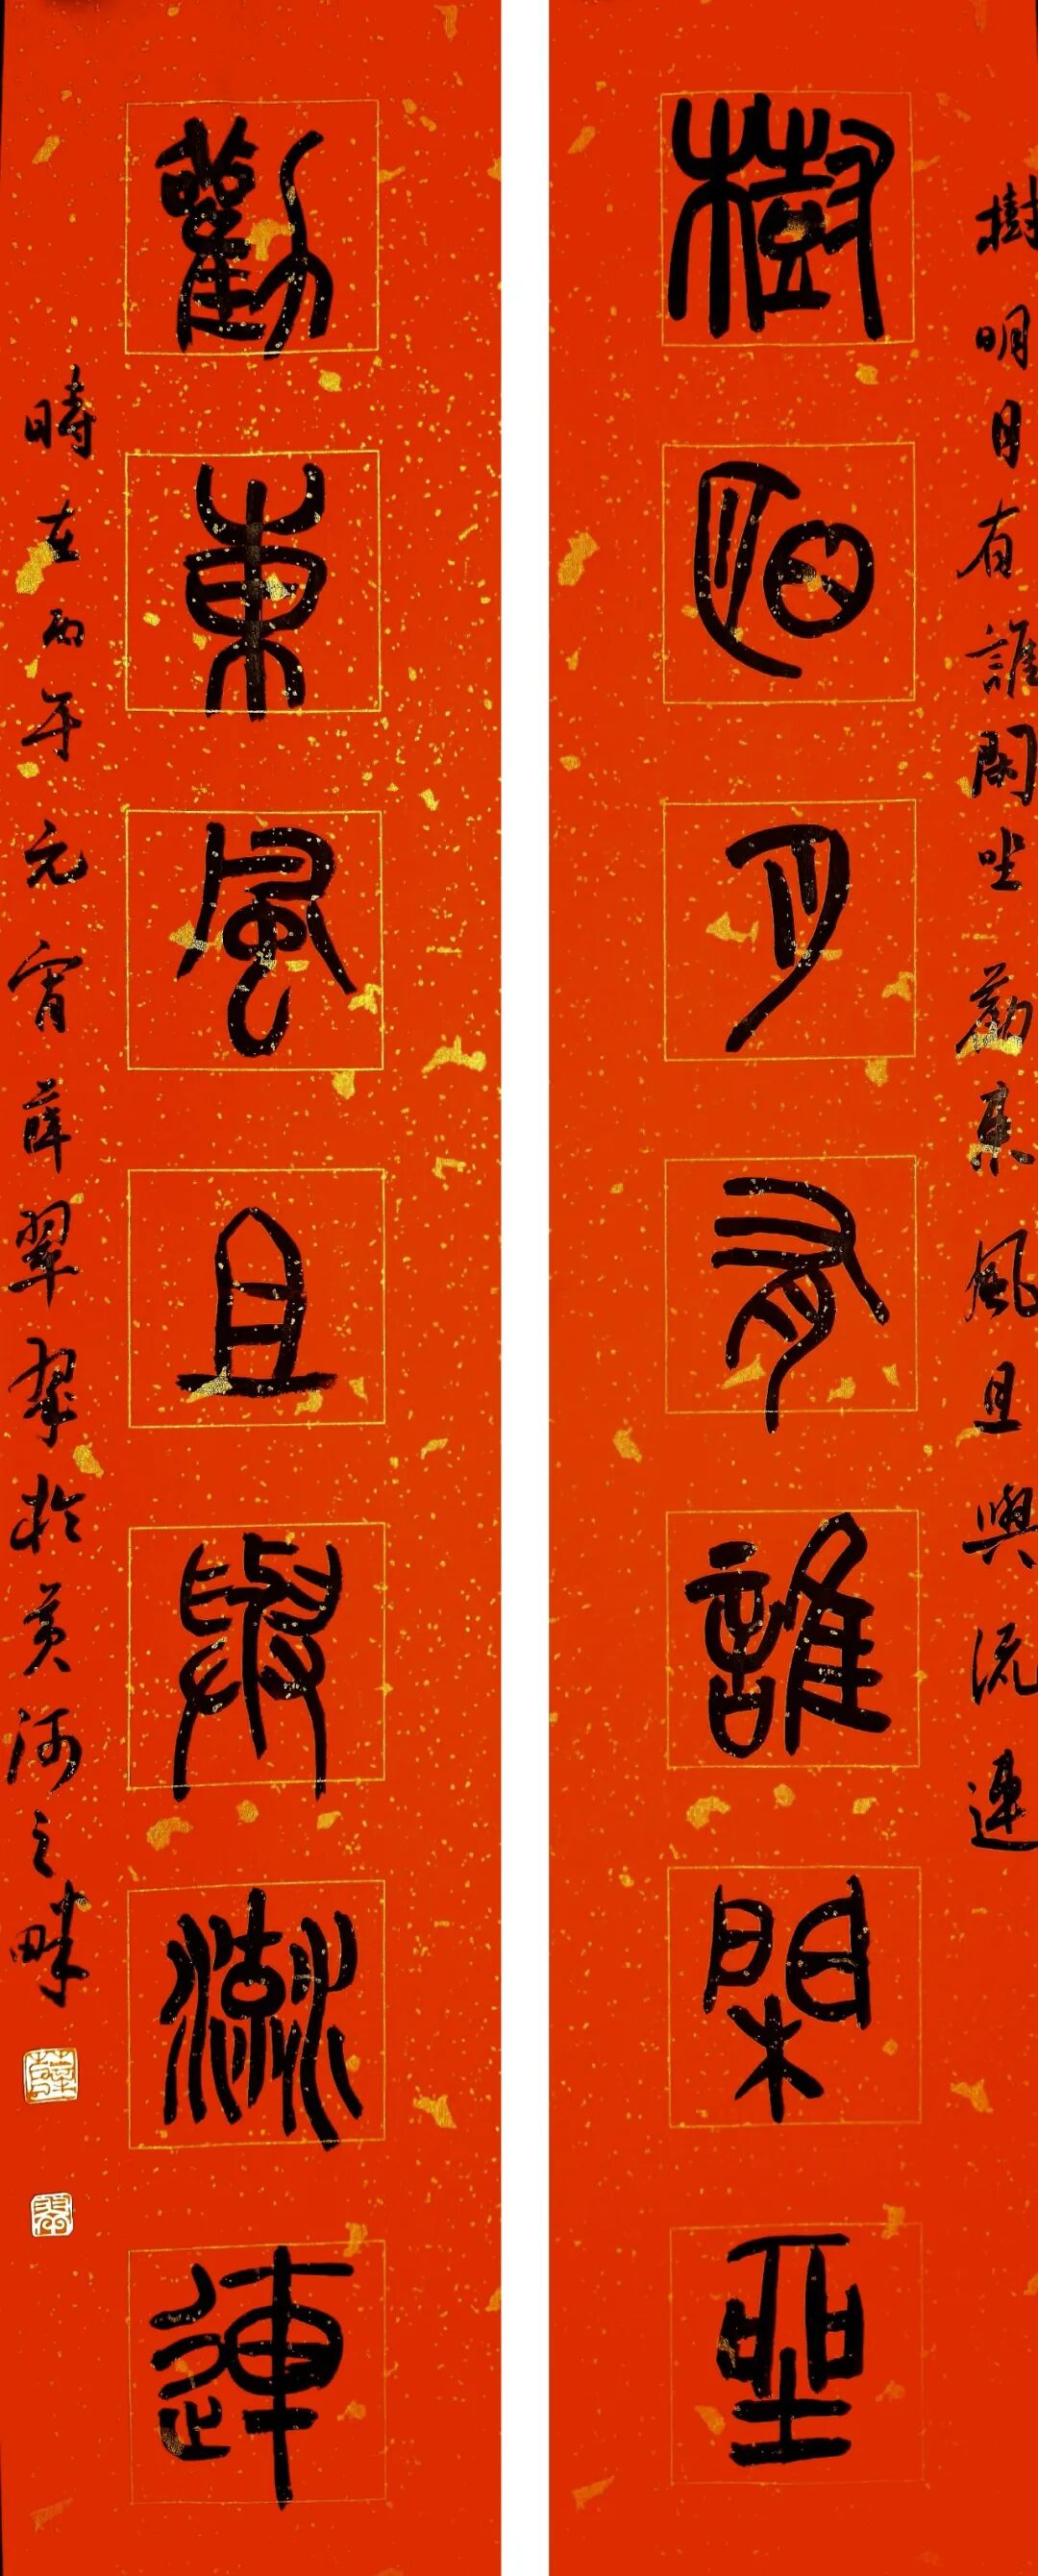 樹明月有誰閑坐勸東風且與流連
樹明月有誰閑坐
勸東風且與流連
時在丙午元宵薛翠翠於黃河之畔
薛
翠